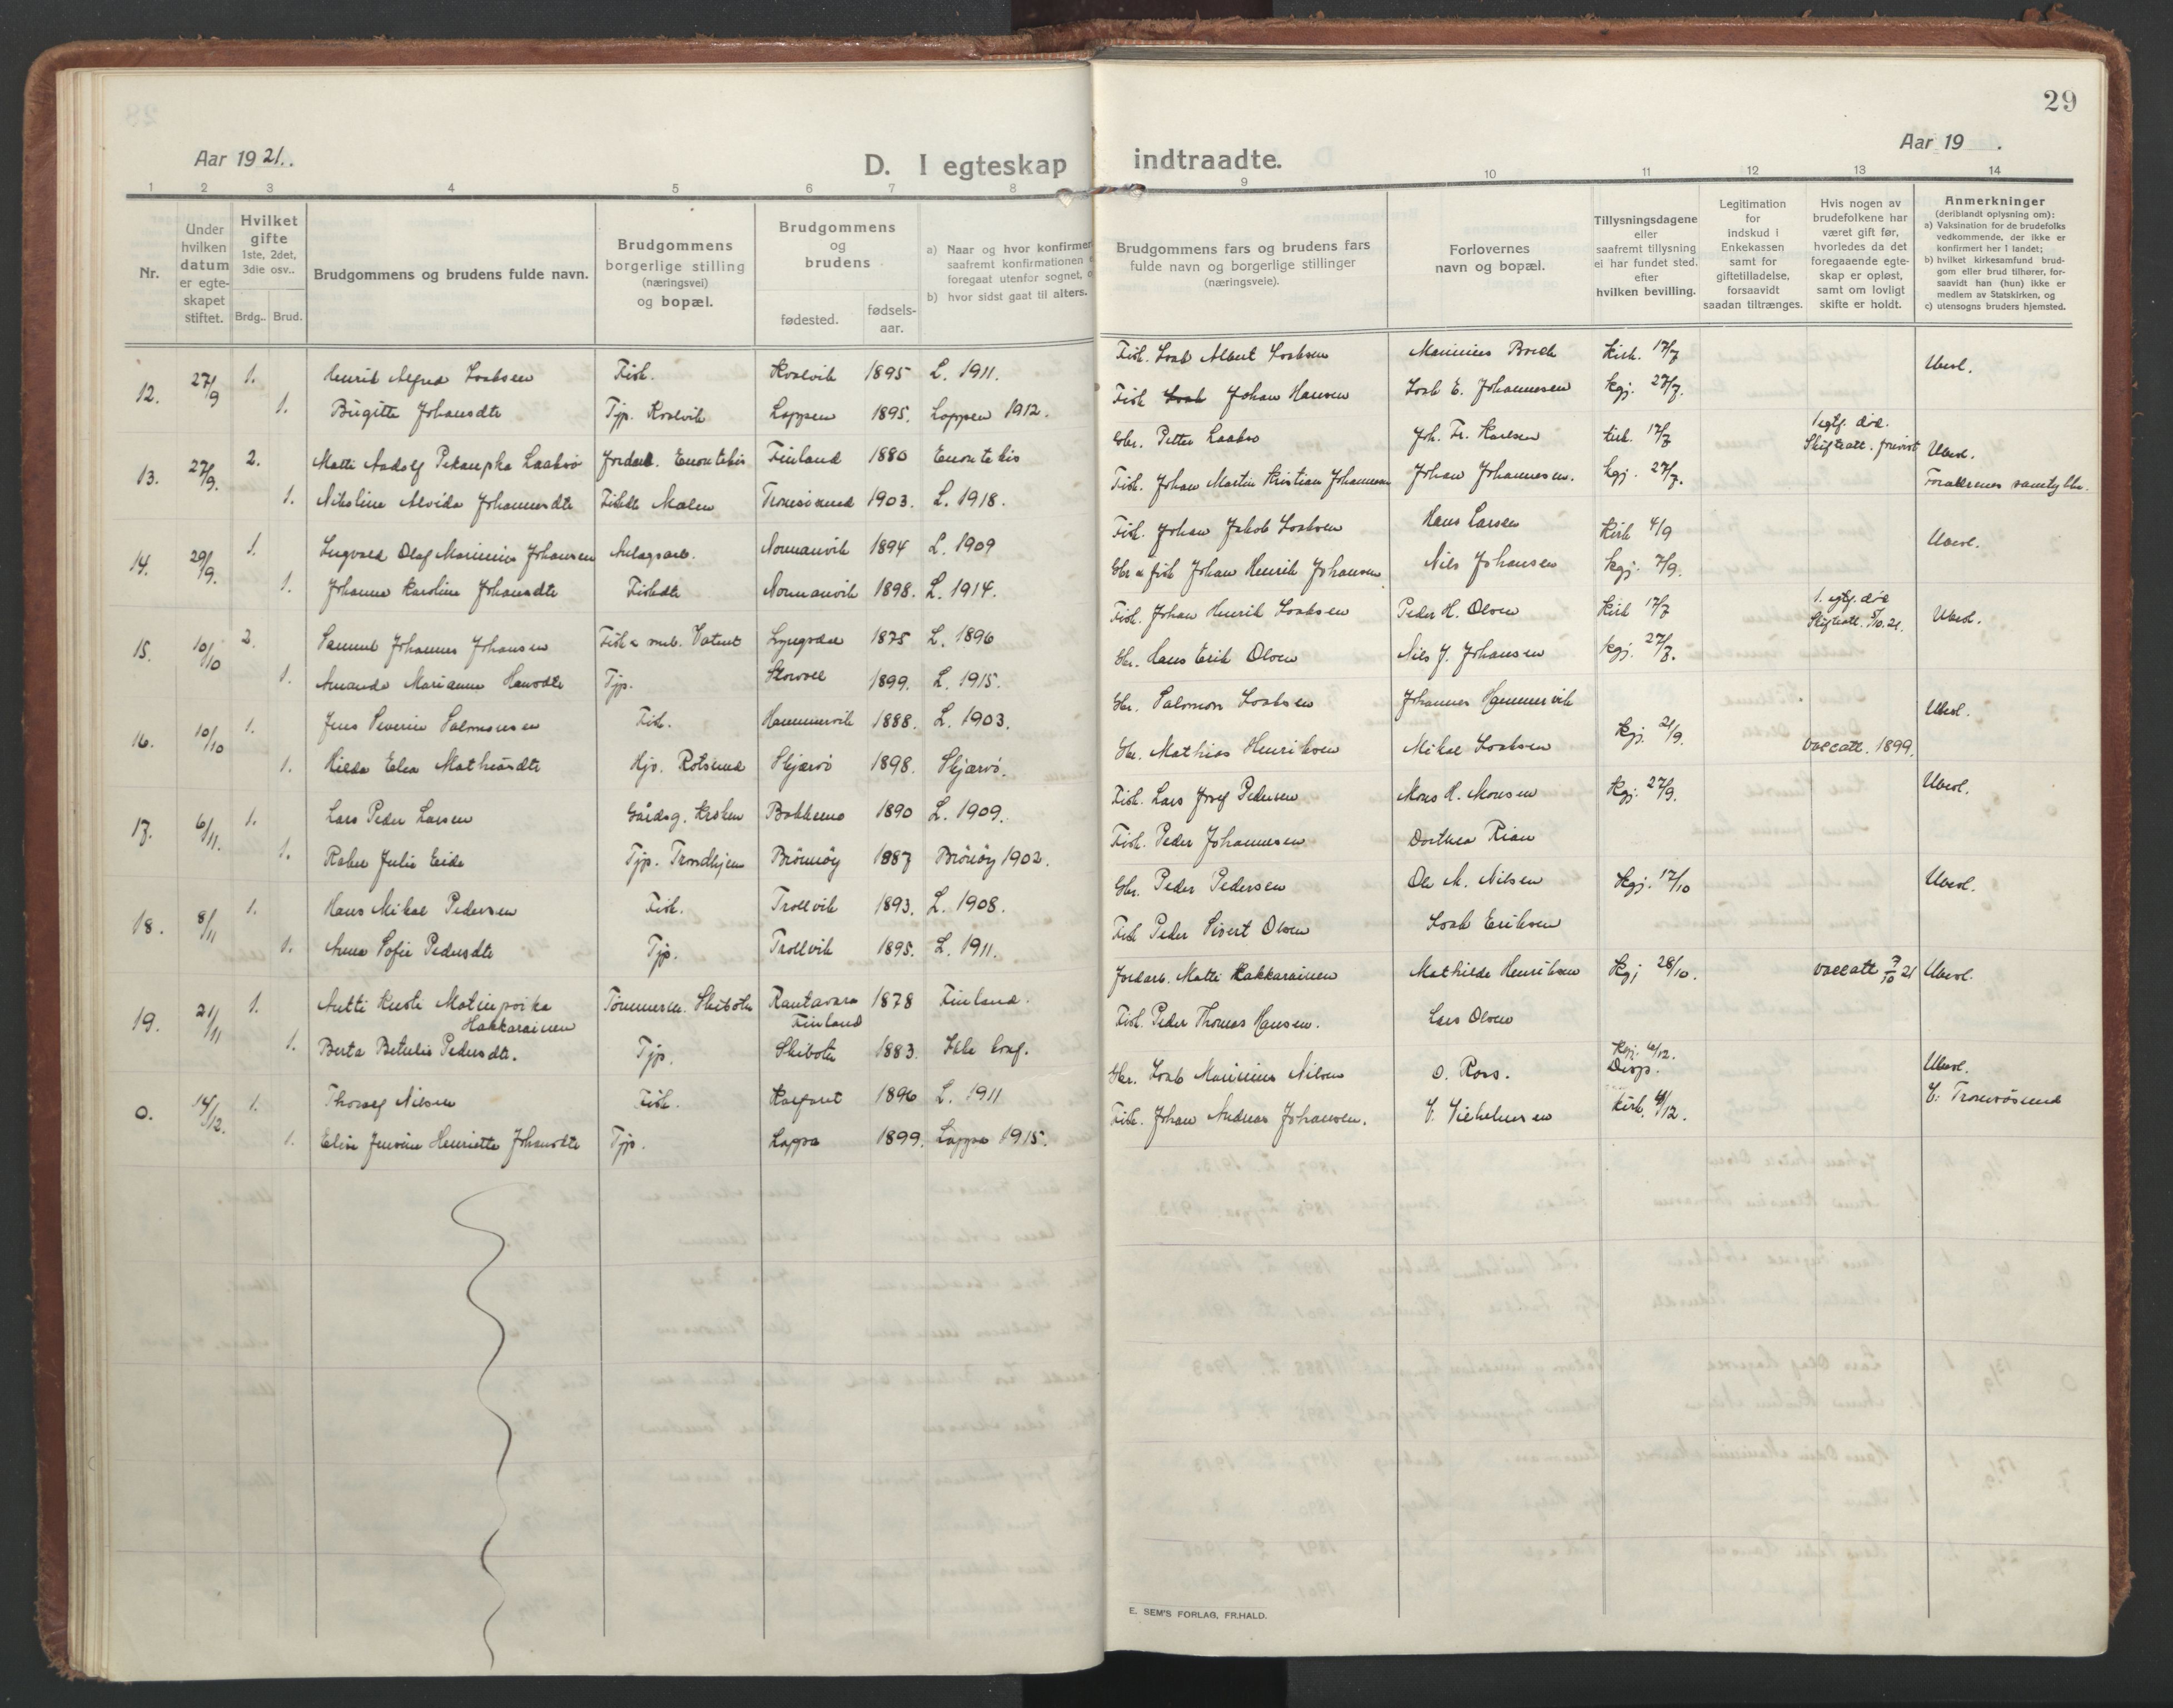 29
Aar 1921.
Aar 19 .
D. I egteskap indtraadte.
1 2 3 4 5 6 7 8 9 10 11 12 13 14
Nr.
Under hvilken datum er egteskapet stiftet.
Hvilket gifte 1ste, 2det, 3die osv..
Brdg.. Brud.
Brudgommens og brudens fulde navn.
Brudgommens borgerlige stilling (næringsvei) og bopæl.
Brudgommens og brudens
fødested.
fødsels-aar.
a) Naar og hvor konfirmer
saafremt konfirmationen
foregaat utenfor sognet,
b) hvor sidst gaat til alters.
Brudgommens fars og brudens fars
fulde navn og borgerlige stillinger
(næringsveie).
Forlovernes
navn og bopæl.
Tillysningsdagene
eller
saafremt tillysning
ei har fundet sted.
efter
hvilken bevilling.
Legitimation
for
indskud i
Enkekassen
samt for
giftetilladelse,
forsaavidt
saadan tiltrænges.
Hvis nogen av
brudefolkene har
været gift før,
hvorledes da det
foregaaende egte-
skap er opløst,
samt om lovligt
skifte er holdt.
Anmerkninger
(deriblandt oplysning om):
a) Vaksination for de brudefolks
vedkommende, der ikke er
konfirmert her i landet;
b) hvilket kirkesamfund brud-
gom eller brud tilhører, for-
saavidt han (hun) ikke er
medlem av Statskirken, og
c) utensogns bruders hjemsted.
12. 27/9 1. Henrik Alfred Isaksen Fisk. Kvalvik 1895 L. 1911. Fisk. Isak Albert Isaksen Marinius Kirk. 17/7 Ubesl.
1. Birgitte Johansdtr Tjp. Kvalvik Loppen 1895. Loppen 1912. Fisk Johan Hansen Isak E. Johannesen kgj. 27/7.
13. 27/9. 2. Matti Aadolf Pekanpka Laakso Enontekis Finland 1880 Enontekis Gbr. Petter Laakso Joh. Fr. Karlsen kirk. 17/7 1 egtf. död. Skifteatt. Ubesl.
1. Nikoline Alvida Johannesdtr Tromsösund 1903. L. 1918. Fisk. Johan Martin Kristian Johannesen Johan Johannesen. kgj. 27/7. Forældrenes samtykke.
14. 29/9. 1. Ingvald Olaf Marinius Johansen Anlagsarb. Normanvik 1894 L. 1909 Fisk. Johan Jakob Isaksen Hans Larsen Kirk 4/9 Ubesl.
1. Johanna Karoline Johansdtr Fiskdtr Normanvik 1898. L. 1914. Gbr & fisk Johan Henrik Johansen Nils Johansen kgj. 7/9.
15. 10/10 2. Samuel Johannes Johansen Lyngsdal 1875 L. 1896 Fisk. Johan Henrik Isaksen Peder H. Olsen Kirk 17/7 1. egtf. död Skifteatt. 5/10.21. Ubesl.
1. Amanda Marianna Hansdtr Tjp. 1899. L. 1915. Gbr. Hans Erik Olsen Nils J. Johansen kgj. 27/7.
16. 10/10 1. Jens Severin Salomonsen Fisk. Hammervik 1888. L. 1903. Gbr. Salomon Isaksen Johannes Hammervik Ubesl.
1. Hilda Elea Mathiasdtr Hjv. Rotsund Skjærvö 1898. Skjærvö. Gbr. Mathias Henriksen Mikal Isaksen Kgj. 21/9. Vaccatt. 1899.
17. 6/11. 1. Lars Peder Larsen Gårdsg. Kroken Bakkemo 1890 L. 1909. Fisk. Lars Josef Pedersen Mons H. Monsen Kgj. 27/9. Ubesl.
1. Julie Eide Tjp. Trondhjem Brönnöy 1887 Brönöy 1902. Fisk. Peder Johannesen Dorthea Rian
18. 8/11 1. Hans Mikal Pedersen Fisk. Trollvik 1893. L. 1908. Gbr. Peder Pedersen Ole M. Nilsen Kgj. 17/10 Ubesl.
1. Anna Sofie Pedersdtr Tjp. Trollvik 1895. L. 1911. Fisk Peder Sivert Olsen Isak Eriksen
19. 21/11 1. Antti Kusti Matinpoika Hakkarainen Skibotn Rautavara Finland 1878 Finland. Jordarb. Matti Hakkarainen Mathilde Henriksen Kgj 28/10. Vaccatt 7/10 21 Ubesl.
1. Berta Betulie Pedersdtr. Tjp. Skibotn 1883. Ikke konf. Fisk. Peder Thomas Hansen. Lars Olsen
0. 14/12. 1. Thoralf Nilsen Fisk. 1896 L. 1911 Gbr. Isak Marinius Nilsen O. Ross. Kgj. 6/12. Disp. Ubesl.
1. Elise Jensine Henriette Johansdtr Tjp. Loppa 1899. Loppa 1915. Fisk. Johan Andreas Johansen. V. Vilhelmsen kirk. 4/12. C: Tromsösund
E. SEM'S FORLAG, FR.HALD.